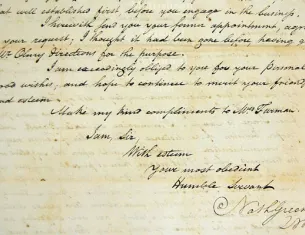 at well established first before you engage in the business
I herewith send you your former appointment agre
your request, I thought it had been gone before having g
Mr Olney directions for the purpose.
I am exceedingly obliged to you for your personal
good wishes, and hope to continue to merit your friend
and esteem
Make my kind compliments to Mrs Furman.
I am, Sir
With esteem
Your most obedient
Humble Servant
Nath Green